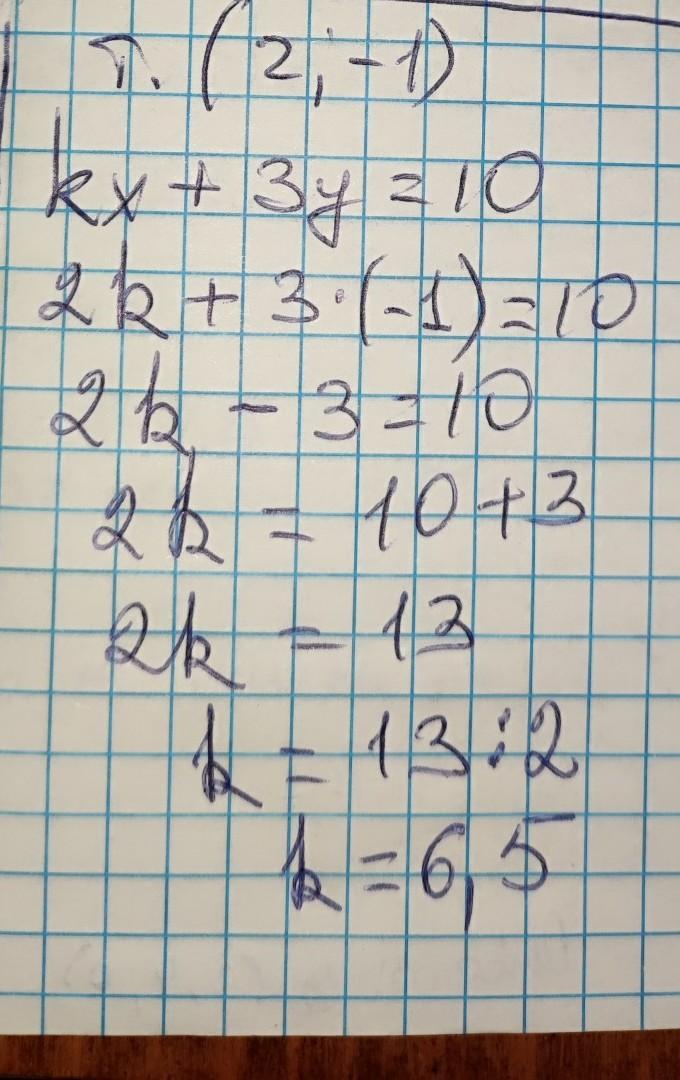 т. (2; -1)
kx + 3y = 10
2k + 3·(-1) = 10
2k - 3 = 10
2k = 10 + 3
2k = 13
k = 13 : 2
k = 6,5